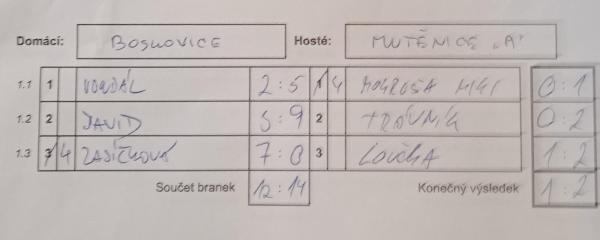 Domácí: BOSKOVICE Hosté: MUTĚNICE „A"
1.1 1 VONDÁL 2:5 1 4 MOKRUŠA MIKI 0:1
1.2 2 DAVID 3:9 2 TRÁVNÍK 0:2
1.3 3 4 ZASÍČKOVÁ 7:0 3 LOUČKA 1:2
Součet branek 12:14 Konečný výsledek 1:2